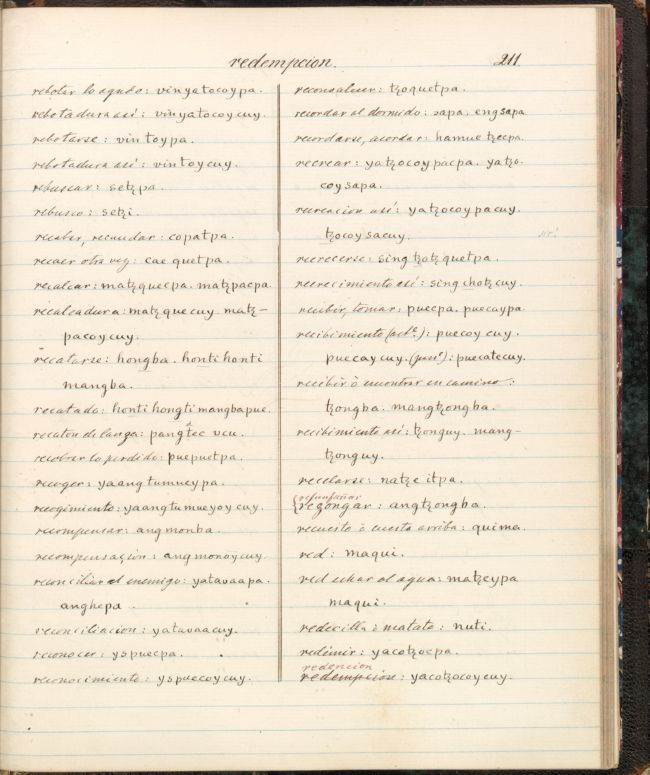 redempcion. 211.
rebotar lo agudo: vinyatocoypa.
rebotadura así: vinyatocoycuy.
rebotarse: vintoypa.
rebotadura así: vintoycuy.
rebuscar: setzpa.
rebusco: setzi.
recabar, recaudar: copatpa.
recaer otra vez: cae quetpa.
recalcar: matzquecpa. matzpacpa.
recalcadura: matzquecuy. matz-
pacoycuy.
recatarse: hongba. honti honti
mangba.
recatado: honti hongti mangbapue.
recaton de lanza: pangtec ucu.
recobrar lo perdido: puepuetpa.
recoger: yaangtumueypa.
recogimiento: yaangtumueyoycuy.
recompensar: angmonba.
recompensaçion: angmonoycuy.
reconciliar el enemigo: yatavaapa.
anghepa.
reconciliacion: yatavaacuy.
reconocer: yspuecpa.
reconocimiento: yspuecoycuy.
reconvalecer: tzoquetpa.
recordar al dormido: sapa. engsapa.
recordarse, acordar: hamuetzecpa.
recrear: yatzocoypacpa. yatzo-
coysapa.
recreacion así: yatzocoypacuy.
tzocoysacuy.
recrecerse: singtzotzquetpa.
recrecimiento así: singchotzcuy.
recibir, tomar: puecpa. puecaypa.
recibimiento (act.e): puecoycuy.
puecaycuy. (pas.e): puecatecuy.
recibir ò encontrar en camino:
tzongba. mangtzongba.
recibimiento así: tzonguy. mang-
tzonguy.
recelarse: natze itpa.
refunfuñar
rezongar: angtzongba.
recuesto ò cuesta arriba: quima.
red: maqui.
red echar al agua: matzeypa
maqui.
redecilla ò matate: nuti.
redimir: yacotzocpa.
redencion
redempcion: yacotzocoycuy.